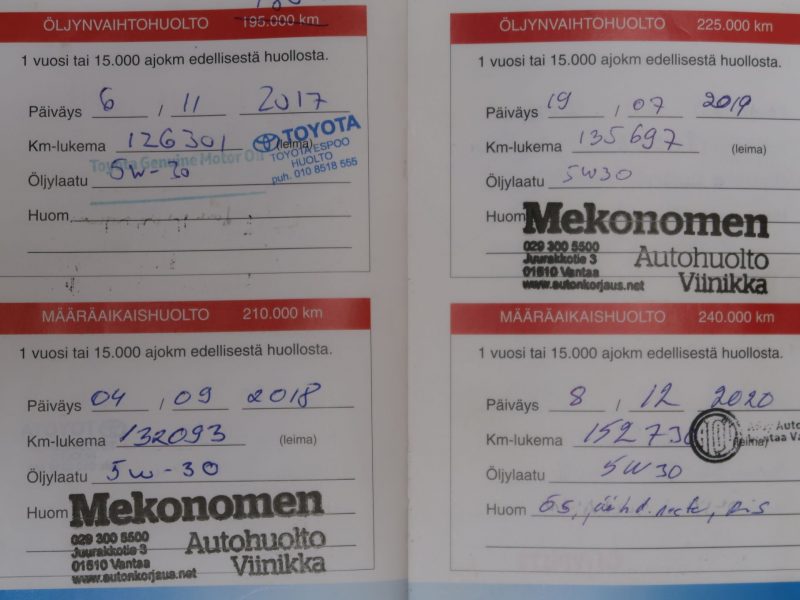 ÖLJYNVAIHTOHUOLTO 195.000 km
1 vuosi tai 15.000 ajokm edellisestä huollosta.
Päiväys 6 / 11 2017
Km-lukema 126301 (leima)
TOYOTA
TOYOTA ESPOO
HUOLTO
puh. 010 8518 555
Toyota Genuine Motor Oil
Öljylaatu 5W-30
Huom
MÄÄRÄAIKAISHUOLTO 210.000 km
1 vuosi tai 15.000 ajokm edellisestä huollosta.
Päiväys 04 / 09 2018
Km-lukema 132093 (leima)
Öljylaatu 5W-30
Huom
Mekonomen
029 300 5500
Juurakkotie 3
01510 Vantaa
www.autonkorjaus.net
Autohuolto
Viinikka
ÖLJYNVAIHTOHUOLTO 225.000 km
1 vuosi tai 15.000 ajokm edellisestä huollosta.
Päiväys 19 / 07 2019
Km-lukema 135697 (leima)
Öljylaatu 5W30
Huom
Mekonomen
029 300 5500
Juurakkotie 3
01510 Vantaa
www.autonkorjaus.net
Autohuolto
Viinikka
MÄÄRÄAIKAISHUOLTO 240.000 km
1 vuosi tai 15.000 ajokm edellisestä huollosta.
Päiväys 8 / 12 2020
Km-lukema 152730 (leima)
Öljylaatu 5W30
Huom ös,